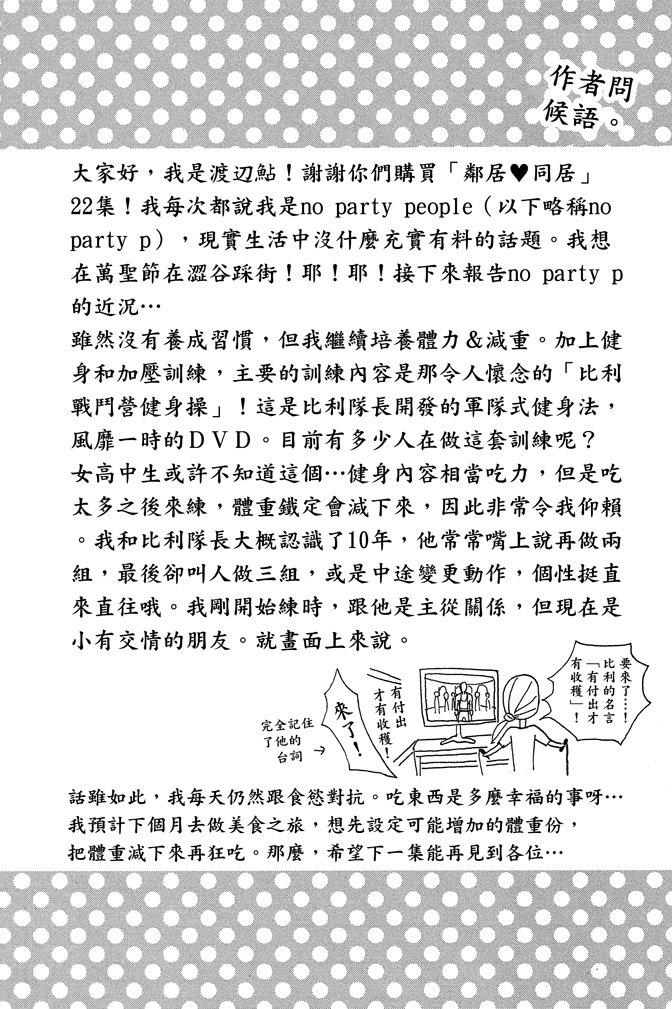 作者問
候語。
大家好，我是渡辺鮎！謝謝你們購買「鄰居♥同居」
22集！我每次都說我是no party people（以下略稱no
party p），現實生活中沒什麼充實有料的話題。我想
在萬聖節在澀谷踩街！耶！耶！接下來報告no party p
的近況…
雖然沒有養成習慣，但我繼續培養體力＆減重。加上健
身和加壓訓練，主要的訓練內容是那令人懷念的「比利
戰鬥營健身操」！這是比利隊長開發的軍隊式健身法，
風靡一時的ＤＶＤ。目前有多少人在做這套訓練呢？
女高中生或許不知道這個…健身內容相當吃力，但是吃
太多之後來練，體重鐵定會減下來，因此非常令我仰賴
。我和比利隊長大概認識了10年，他常常嘴上說再做兩
組，最後卻叫人做三組，或是中途變更動作，個性挺直
來直往哦。我剛開始練時，跟他是主從關係，但現在是
小有交情的朋友。就畫面上來說。
要來了…！
比利的名言
「有付出才
有收穫」！
有付出
才有收穫！
來了！
完全記住
了他的
台詞
話雖如此，我每天仍然跟食慾對抗。吃東西是多麼幸福的事呀…
我預計下個月去做美食之旅，想先設定可能增加的體重份，
把體重減下來再狂吃。那麼，希望下一集能再見到各位…